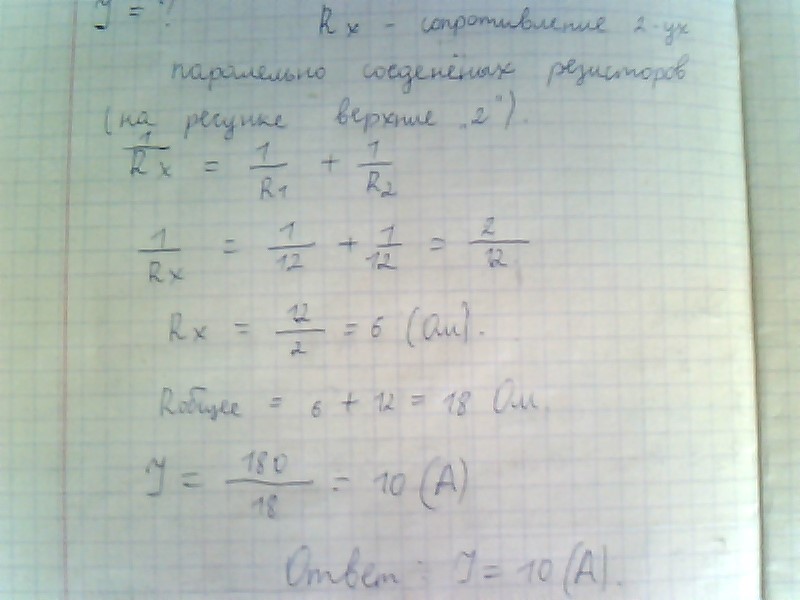 J = ?
Rx - сопротивление 2-ух
паралельно соеденёных резисторов
(на ресунке верхние „2").
1/Rx = 1/R1 + 1/R2
1/Rx = 1/12 + 1/12 = 2/12
Rx = 12/2 = 6 (Ом).
Rобщее = 6 + 12 = 18 Ом.
J = 180/18 = 10 (А)
Ответ: J = 10 (А).